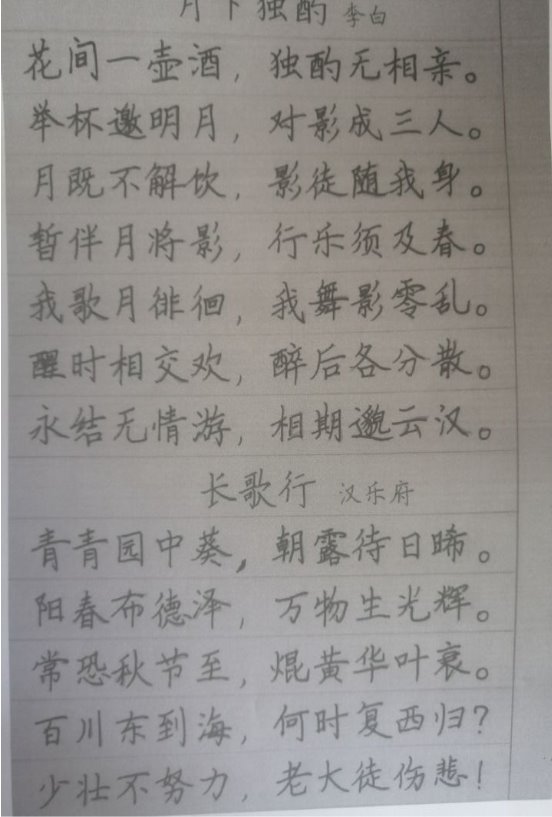 月下独酌 李白
花间一壶酒，独酌无相亲。
举杯邀明月，对影成三人。
月既不解饮，影徒随我身。
暂伴月将影，行乐须及春。
我歌月徘徊，我舞影零乱。
醒时相交欢，醉后各分散。
永结无情游，相期邈云汉。
长歌行 汉乐府
青青园中葵，朝露待日晞。
阳春布德泽，万物生光辉。
常恐秋节至，焜黄华叶衰。
百川东到海，何时复西归？
少壮不努力，老大徒伤悲！